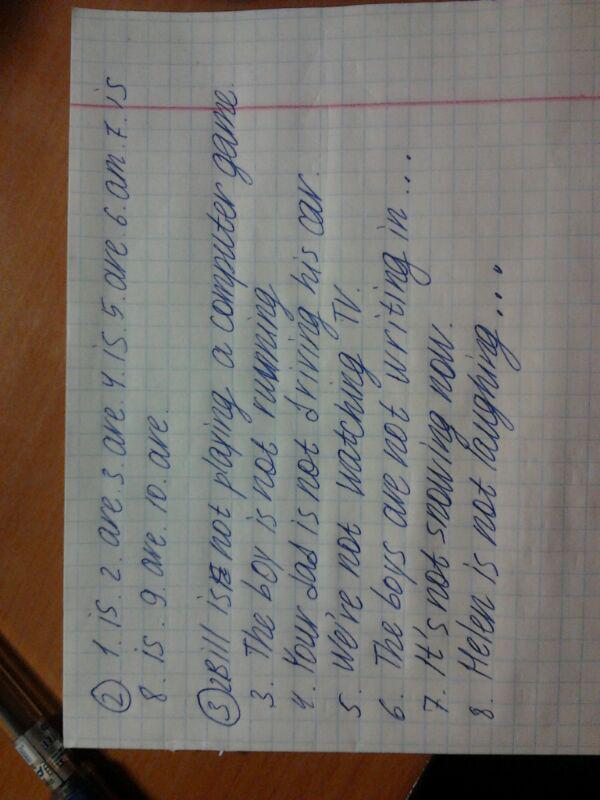 ② 1. is. 2. are. 3. are. 4. is. 5. are. 6. am. 7. is
8. is. 9. are. 10. are.
③ 2 Bill is not playing a computer game.
3. The boy is not running
4. Your dad is not driving his car.
5. We're not watching TV.
6. The boys are not writing in ...
7. It's not snowing now.
8. Helen is not laughing ...